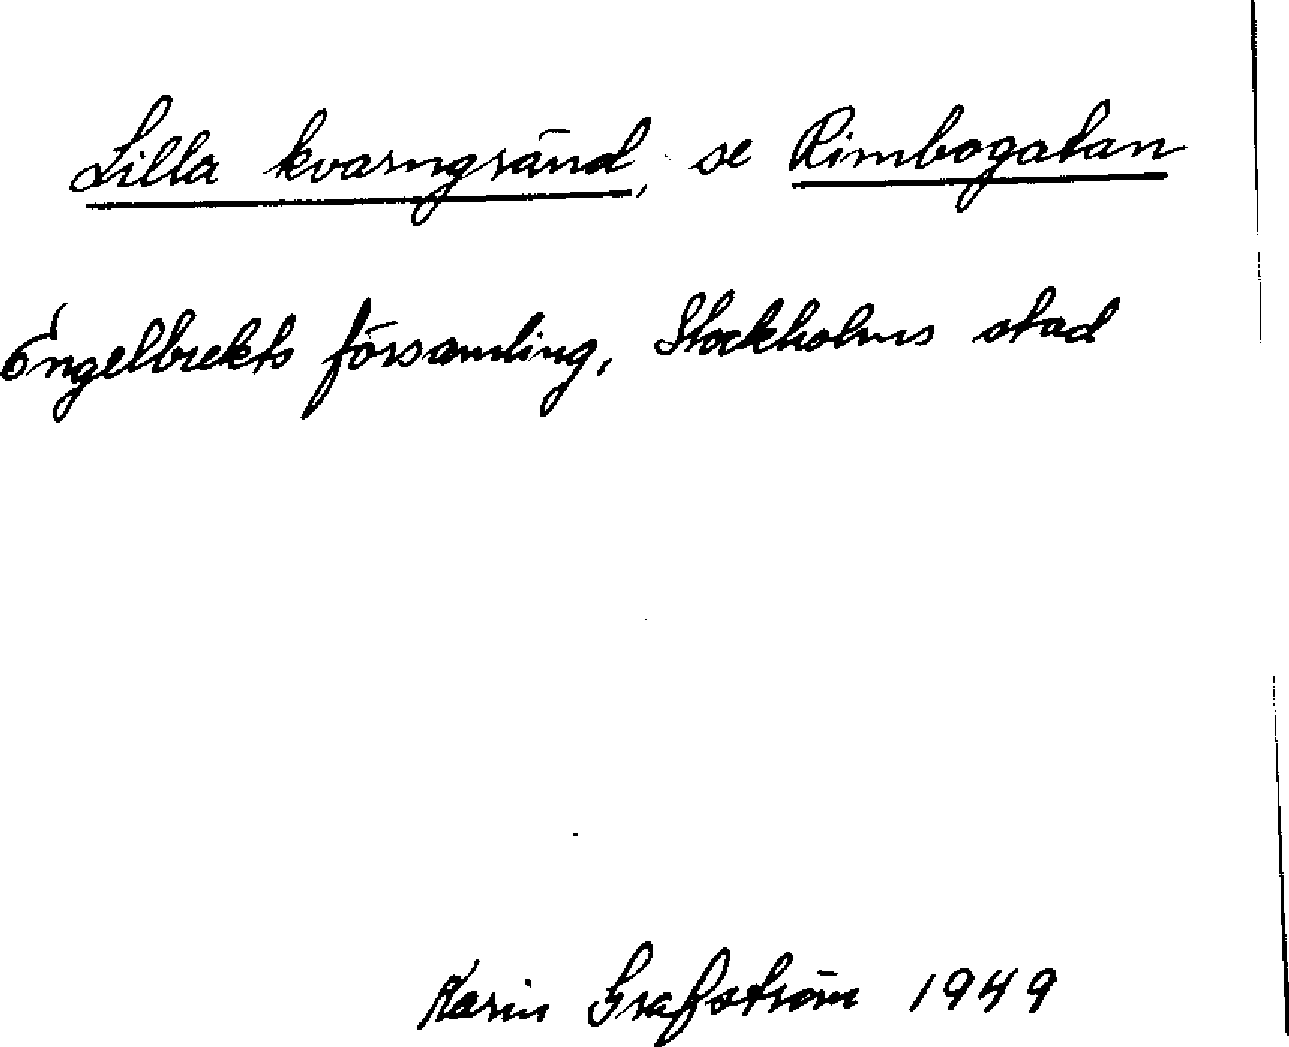 Lilla kvarngränd, se Rimbogatan
Engelbrekts församling, Stockholms stad
Karin Grafström 1949